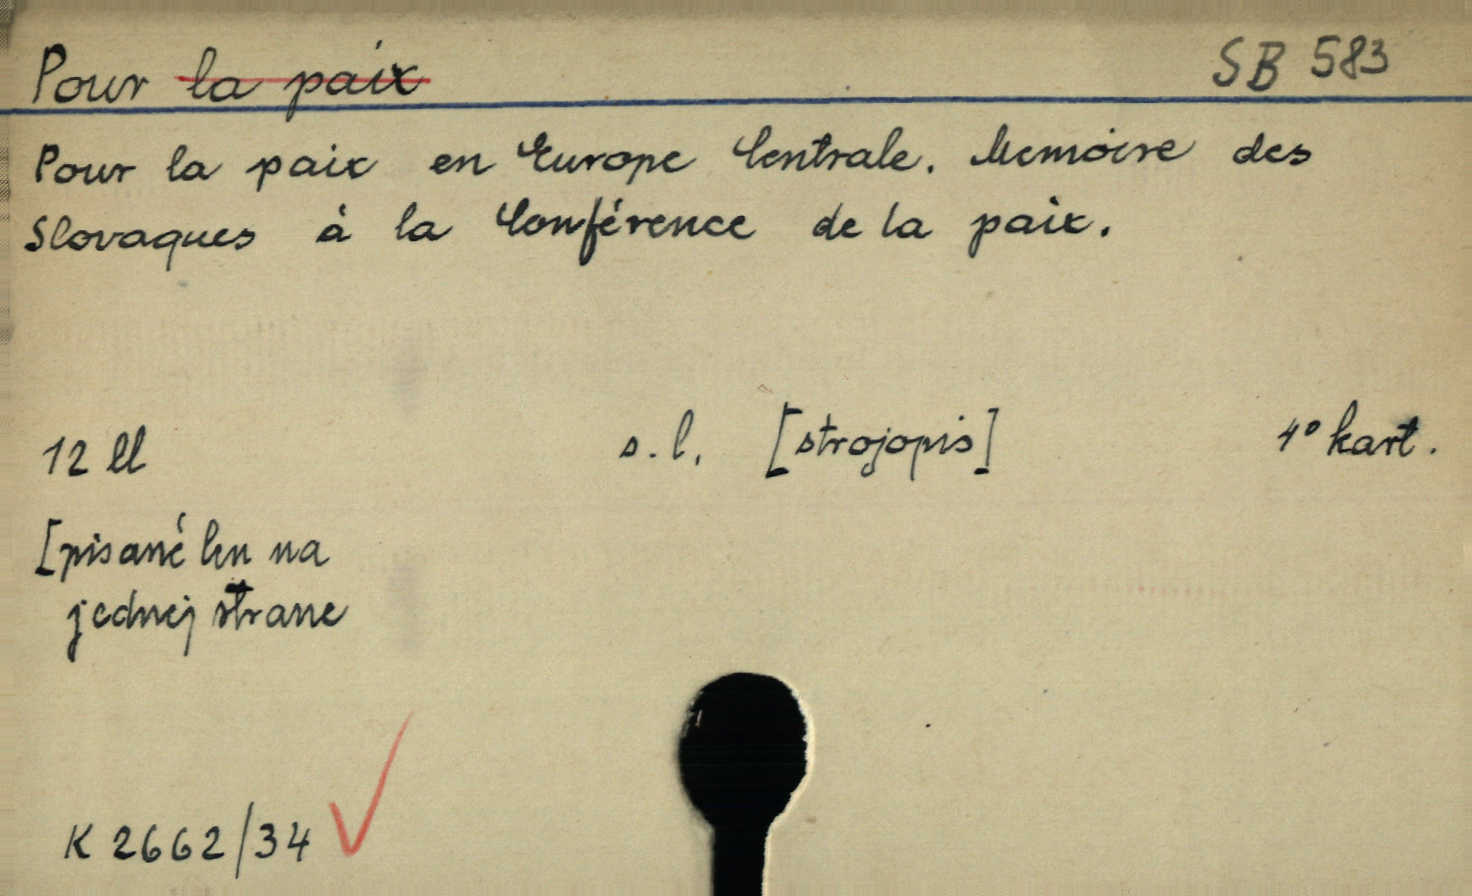 Pour la paix SB 583
Pour la paix en Europe Centrale. Memoire des
Slovaques à la Conférence de la paix.
12 ll s.l. [strojopis] 4° kart.
[pisané len na
jednej strane
K 2662/34